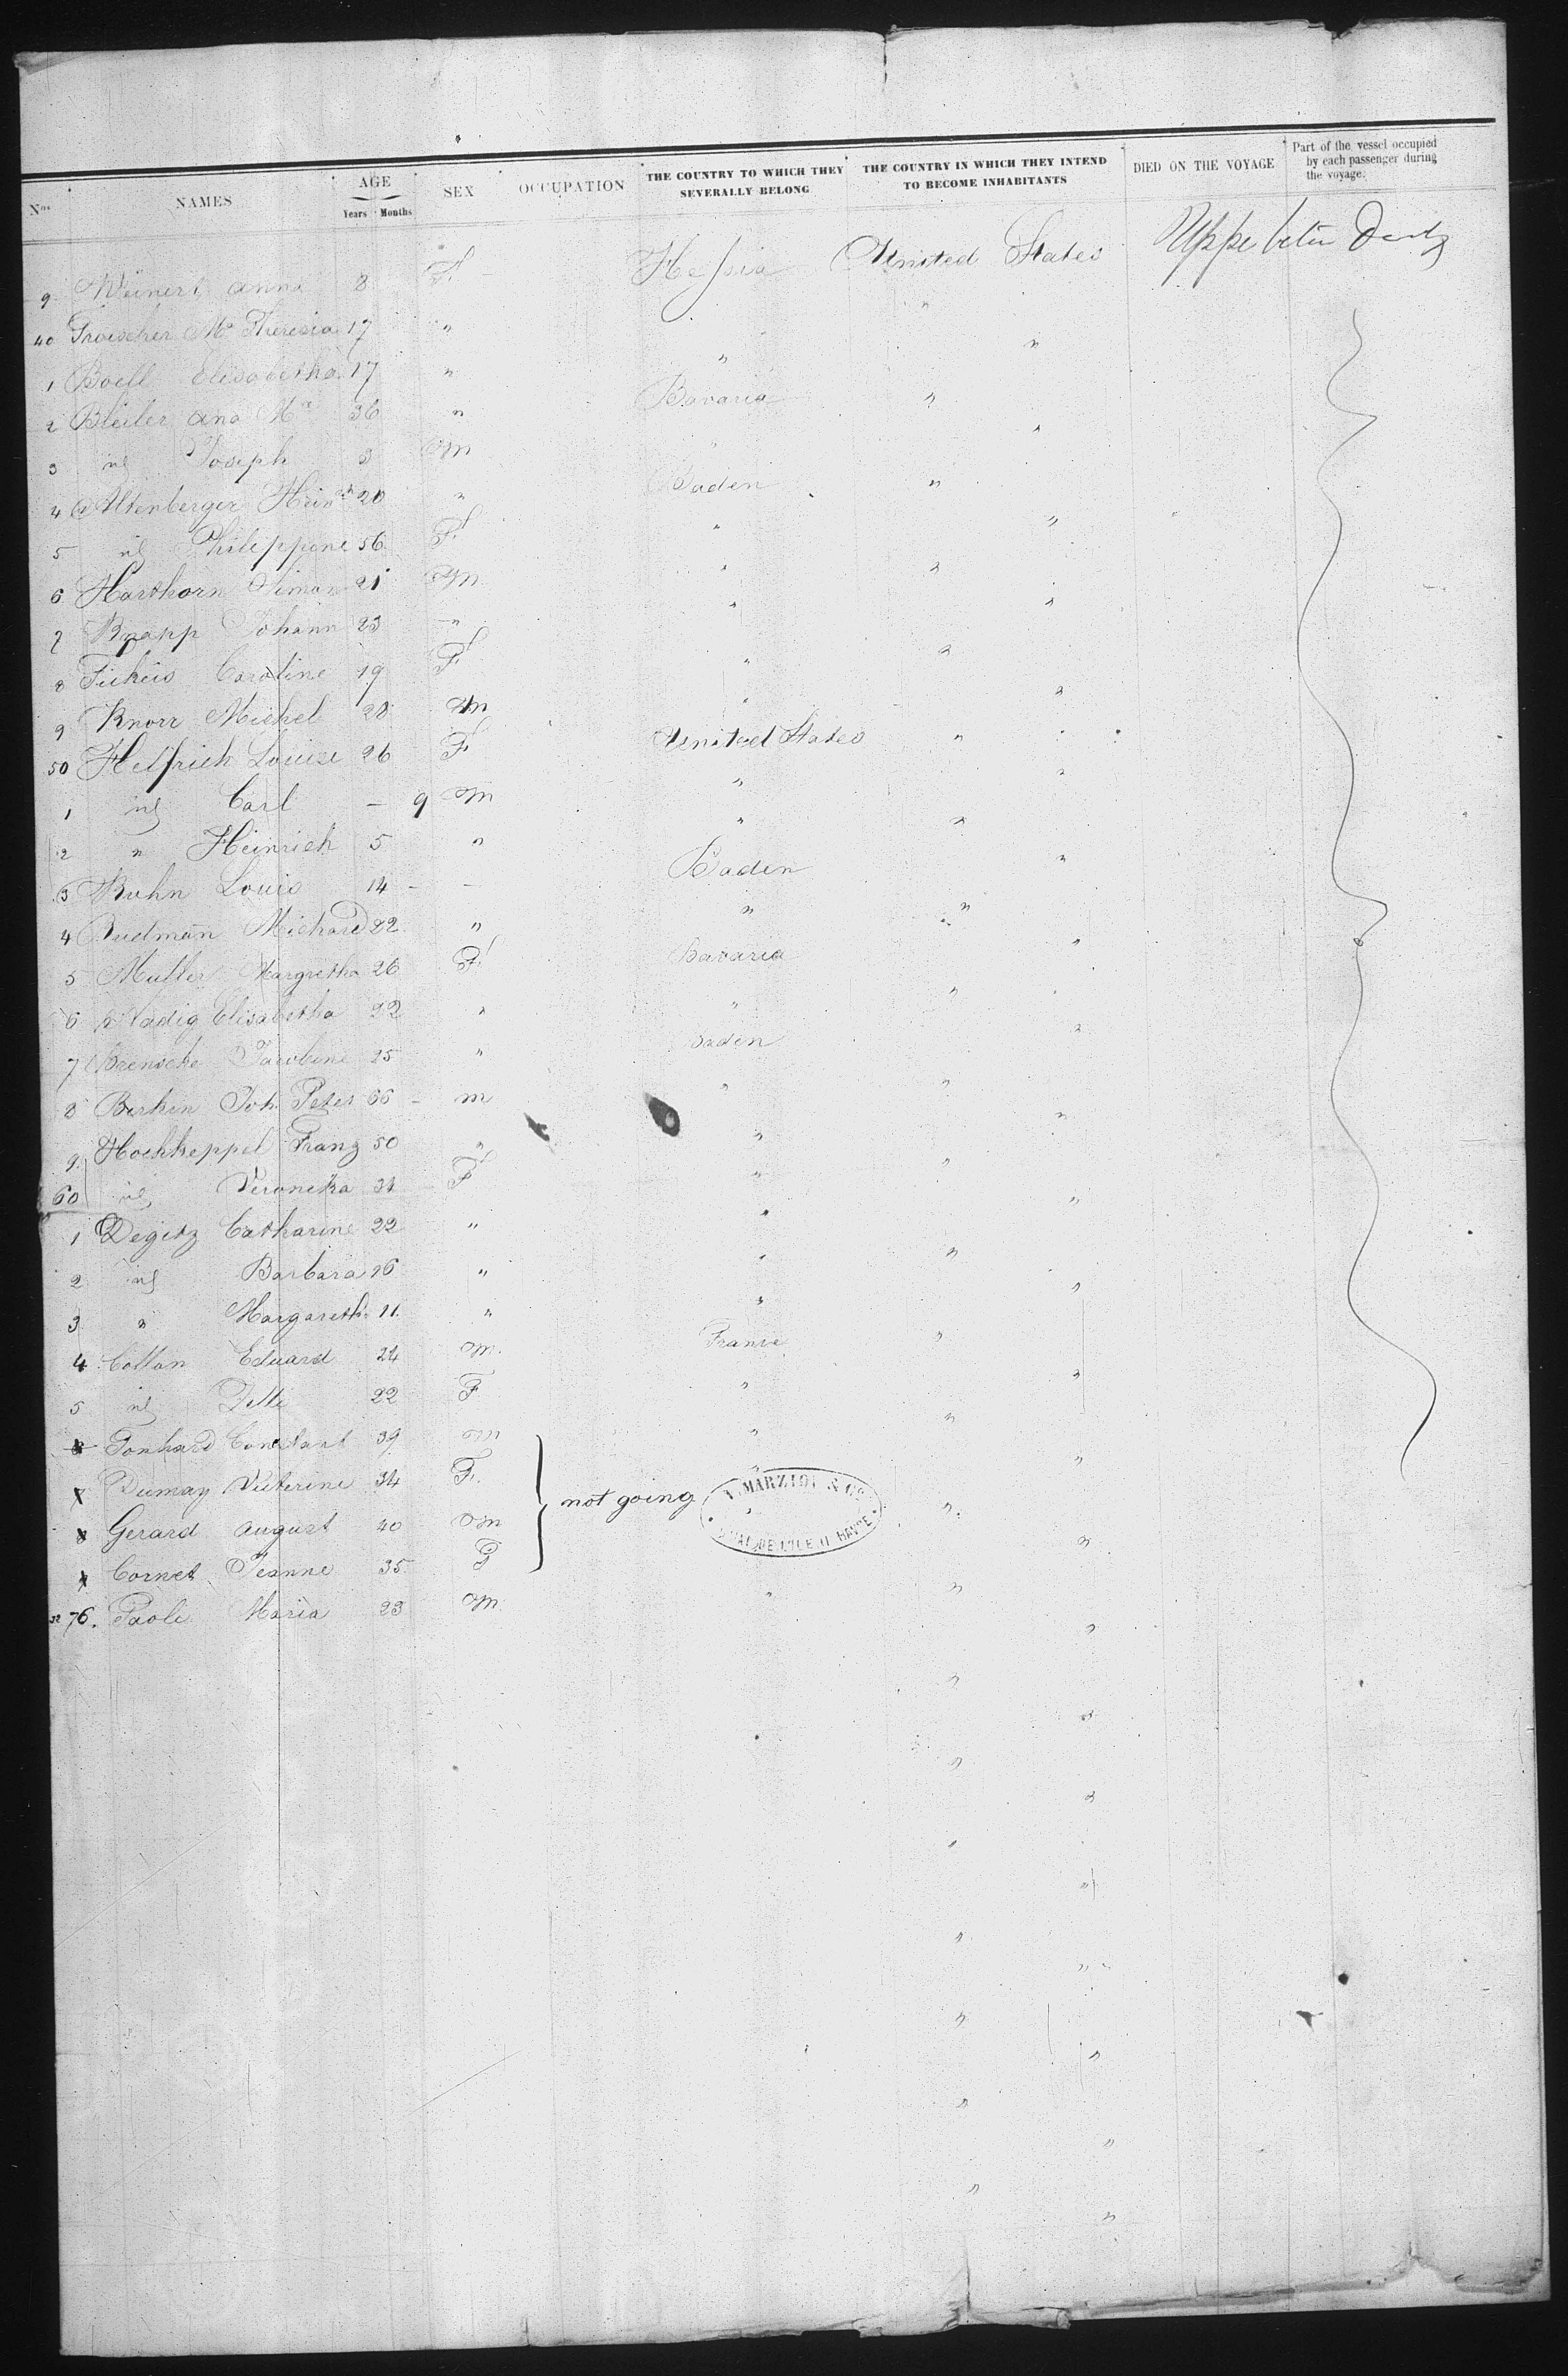 Nos NAMES AGE Years Months SEX OCCUPATION THE COUNTRY TO WHICH THEY SEVERALLY BELONG THE COUNTRY IN WHICH THEY INTEND TO BECOME INHABITANTS DIED ON THE VOYAGE Part of the vessel occupied by each passenger during the voyage.
9 Weinert anna 8 F Hessia United States
40 Troescher Ma Theresia 17 " " "
1 Boell Elisabetha 17 " " "
2 Bleiler ana Ma 36 " Bavaria "
3 id Joseph 3 m " "
4 Altenberger Heinch 20 " Baden "
5 id Philippine 56 F " "
6 Harthorn Simon 21 m " "
7 Knapp Johann 23 " " "
8 Caroline 19 F " "
9 Knorr Michel 28 m " "
50 Helfrich Louise 26 F United States "
1 id Carl – 9 m " "
2 " Heinrich 5 " " "
3 Kuhn Louis 14 - - Baden "
4 Michael 22 " " "
5 Muller Margretha 26 F Bavaria "
6 Elisabetha 22 " " "
7 Jacobine 25 " Baden "
8 Joh. Peter 66 - m " "
9 Hochkeppel Franz 50 " " "
60 id Veronika 34 F " "
1 Degitz Catharine 22 " " "
2 id Barbara 26 " " "
3 " Margareth 11 " " "
4 Collon Eduard 24 m France "
5 id 22 F " "
Constant 39 m " "
Dumay 34 F. " "
not going
8 Gerard august 40 m " "
Cornet Jeanne 35 F "
76. Paoli Maria 23 m " "
MARZIOU & Co HAVRE